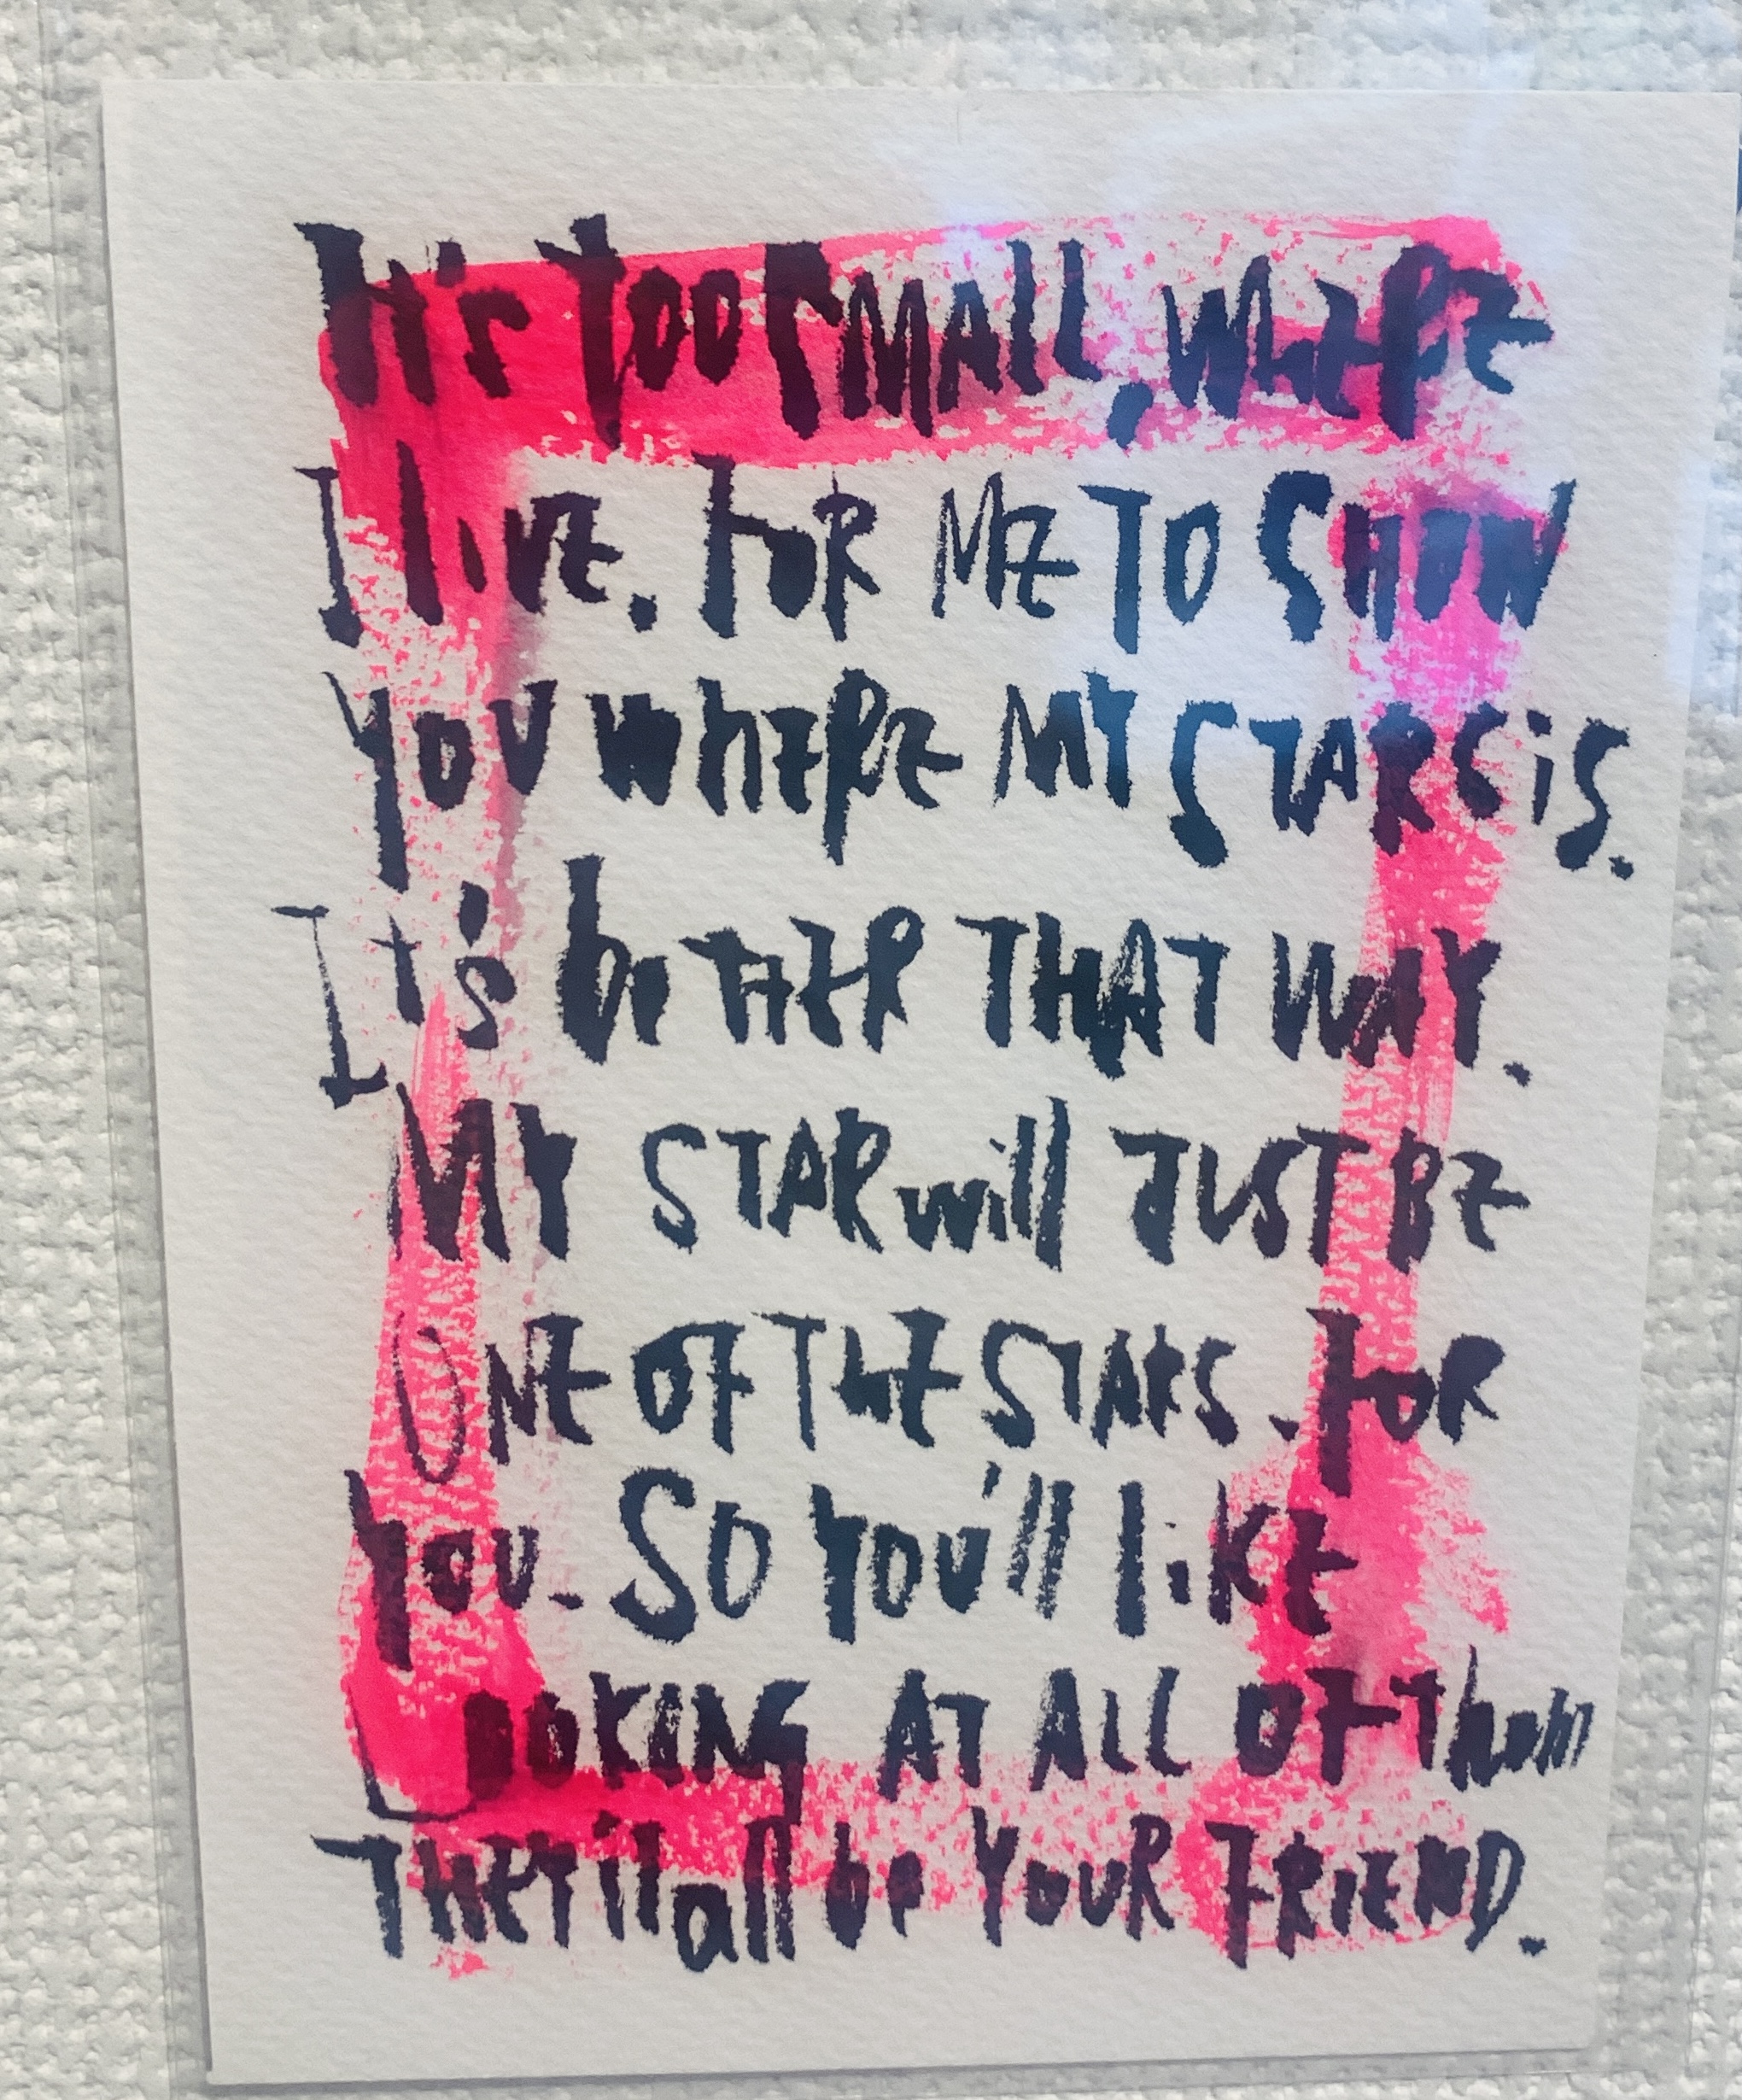 It's too small, where
I live. For me to show
you where my stars is.
It's better that way.
My star will just be
one of the stars. For
you. So you'll like
looking at all of them
They'll all be your friend.